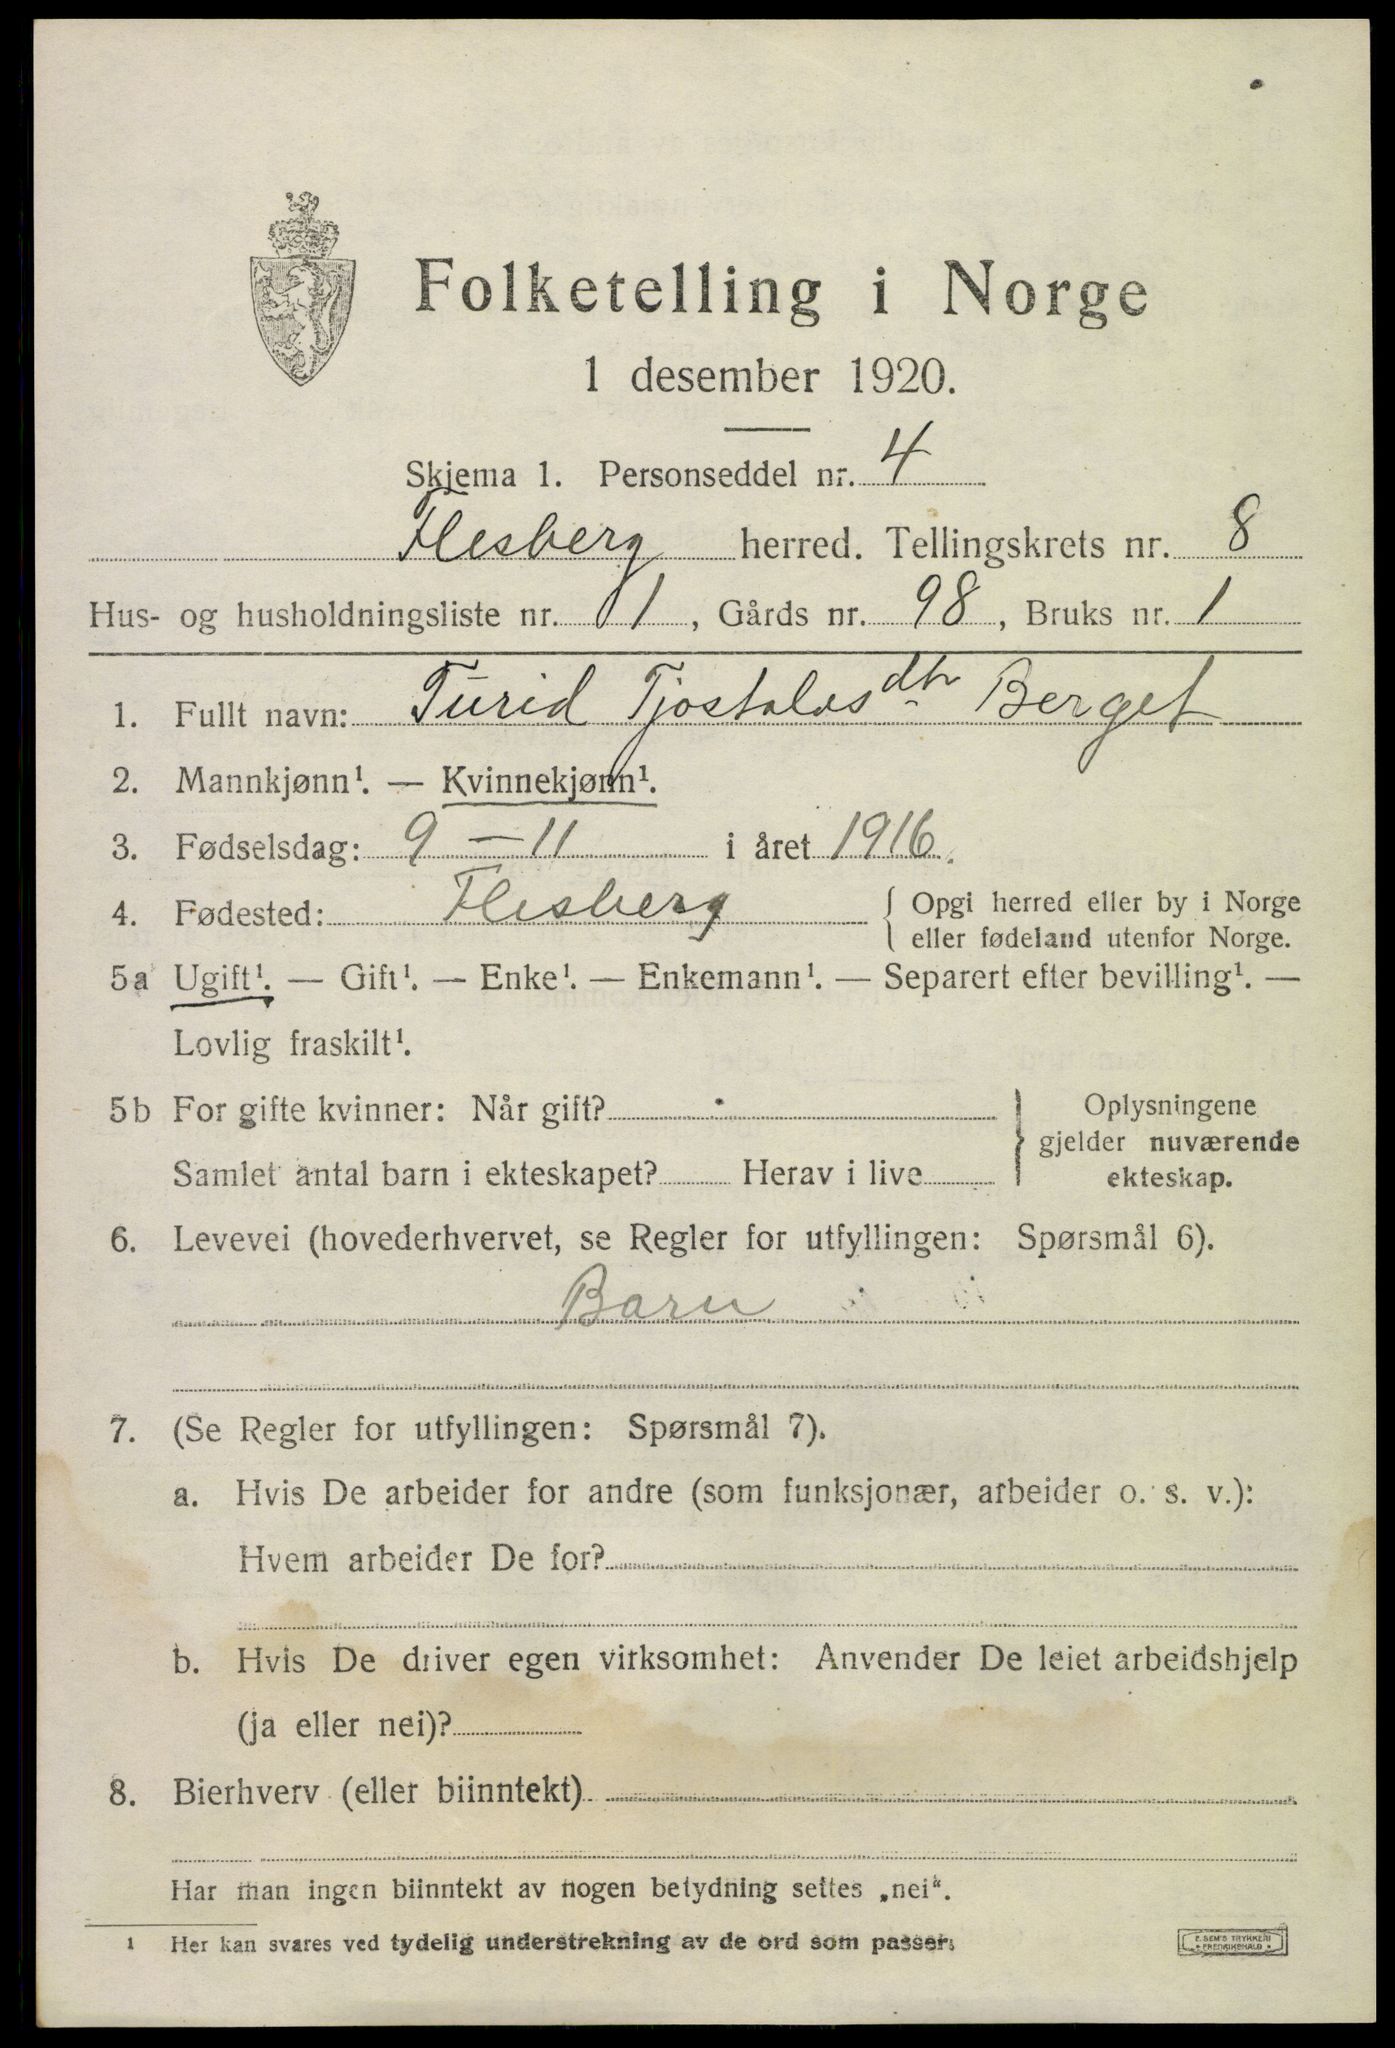 Folketelling i Norge
1 desember 1920.
Skjema 1. Personseddel nr. 4
Flesberg herred. Tellingskrets nr. 8
Hus- og husholdningsliste nr. 1, Gårds nr. 98, Bruks nr. 1
1. Fullt navn: Turid Tjostolvsdtr Berget
2. Mannkjønn¹. — Kvinnekjønn¹.
3. Fødselsdag: 9 – 11 i året 1916.
4. Fødested: Flesberg { Opgi herred eller by i Norge
eller fødeland utenfor Norge.
5a Ugift¹. — Gift¹. — Enke¹. — Enkemann¹. — Separert efter bevilling¹. —
Lovlig fraskilt¹.
5b For gifte kvinner: Når gift? } Oplysningene
gjelder nuværende
Samlet antal barn i ekteskapet? Herav i live ekteskap.
6. Levevei (hovederhvervet, se Regler for utfyllingen: Spørsmål 6).
Barn
7. (Se Regler for utfyllingen: Spørsmål 7).
a. Hvis De arbeider for andre (som funksjonær, arbeider o. s. v.):
Hvem arbeider De for?
b. Hvis De driver egen virksomhet: Anvender De leiet arbeidshjelp
(ja eller nei)?
8. Bierhverv (eller biinntekt)
Har man ingen biinntekt av nogen betydning settes „nei“.
¹ Her kan svares ved tydelig understrekning av de ord som passer.
E. SEM'S TRYKKERI
FREDRIKSHALD